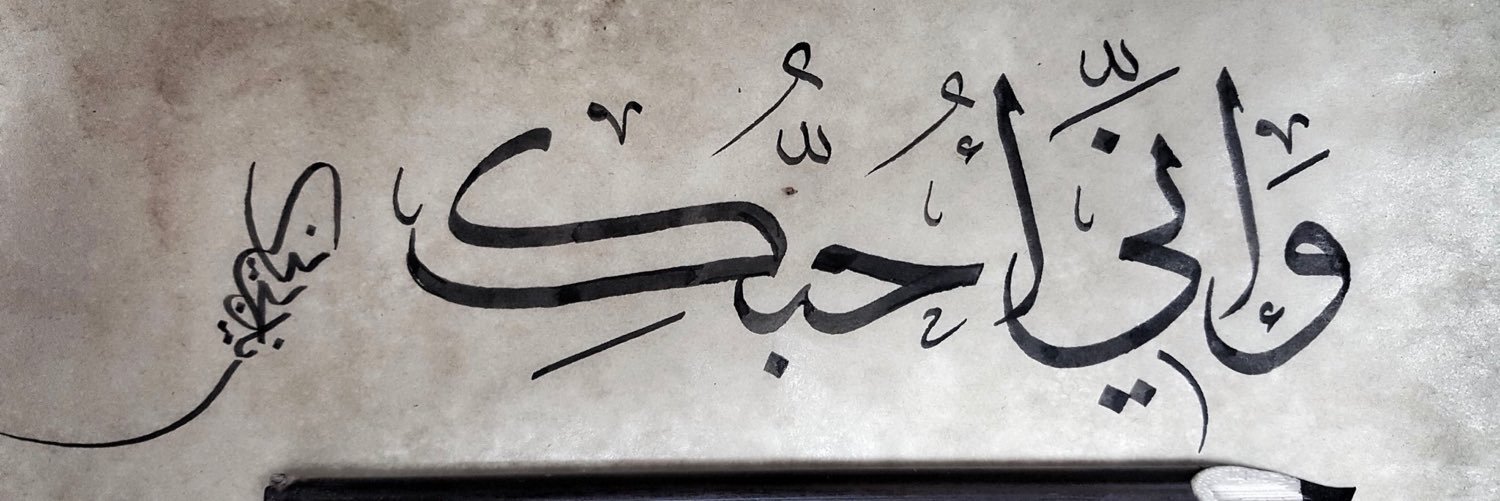 وَإِنِّي أُحُبُّكِ